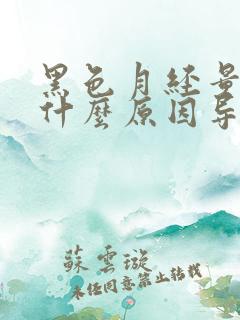 黑色月经量
什麼原因导
蘇雲璇
未经同意禁止转载